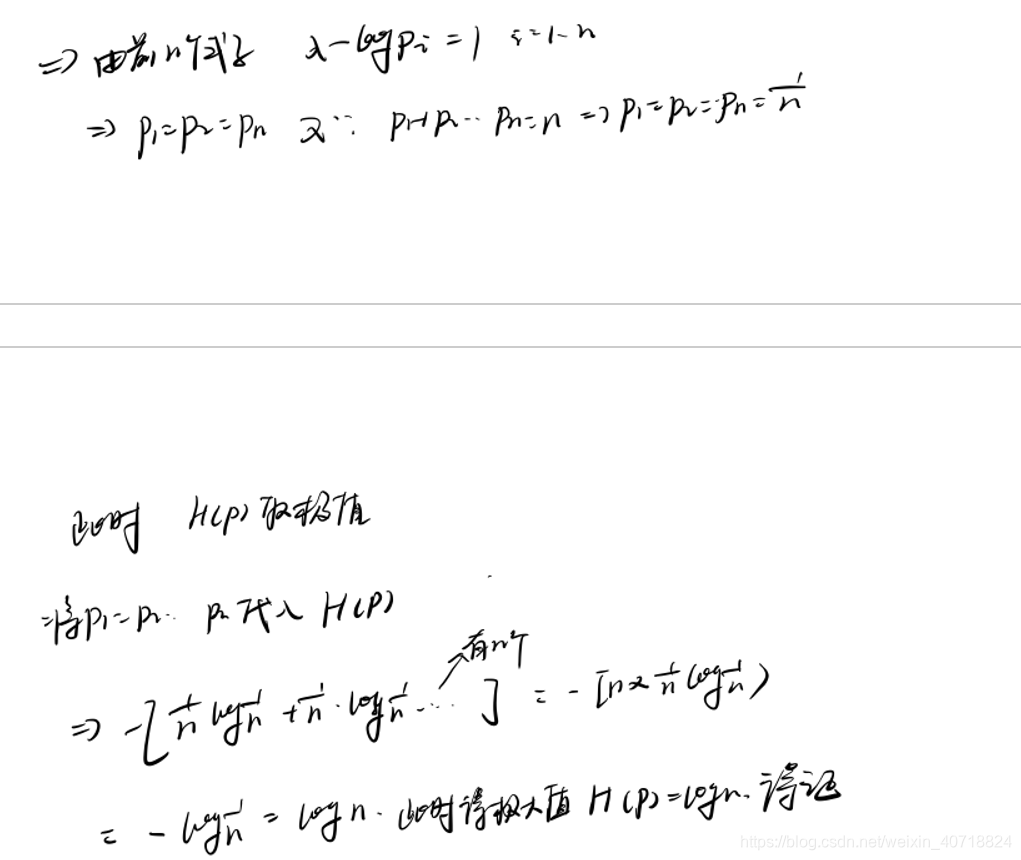 ⇒ 由前n个式子 λ-logpi=1 i=1-n
⇒ p1=p2=pn 又∵ p1+p2… pn=n ⇒ p1=p2=pn=1/n
此时 H(p)取极值
将p1=p2… pn代入 H(P)
有n个
⇒ -[1/n log1/n + 1/n·log1/n …] = -[n×1/n log1/n)
= -log1/n = logn. 此时得极大值 H(p)=logn. 得证
https://blog.csdn.net/weixin_40718824